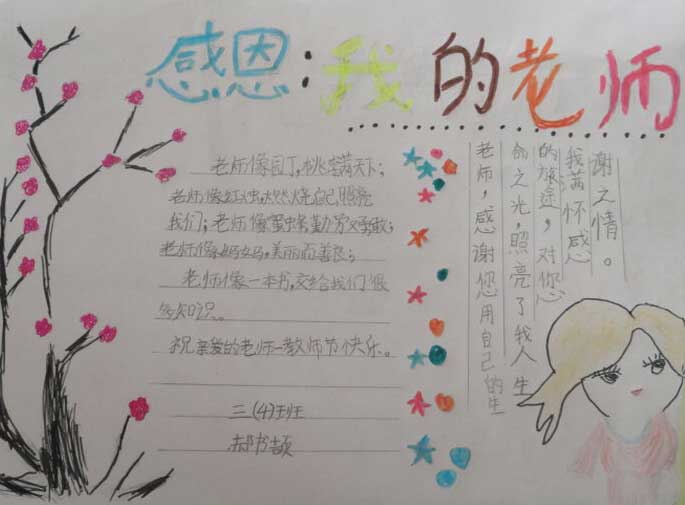 感恩:我的老师
老师像园丁,桃李满天下;
老师像红烛,燃烧自己,照亮
我们;老师像蜜蜂勤劳又勇敢;
老师像妈妈,美丽而善良;
老师像一本书,交给我们很
多知识。
祝亲爱的老师—教师节快乐。
三(4)班
郝书颉
老师,感谢您用自己的生
命之光,照亮了我人生
的旅途,对您
我满怀感
谢之情。